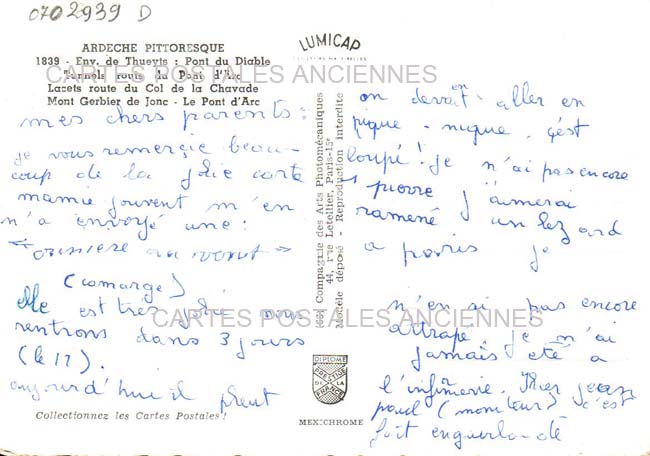 0702939 D
ARDECHE PITTORESQUE
1839 - Env. de Thueyts : Pont du Diable
Tunnels route du Pont d'Arc
Lacets route du Col de la Chavade
Mont Gerbier de Jonc - Le Pont d'Arc
mes chers parents :
je vous remerçie beau-
coup de la jolie carte
mamie souvent m'en
n'a envoyé une :
au vent »
(camarge)
elle est très jolie nous
rentrons dans 3 jours
(le 17).
aujourd'hui il pleut
Collectionnez les Cartes Postales !
LUMICAP
Compagnie des Arts Photomécaniques
44, rue Letellier, Paris-15e
Modèle déposé - Reproduction interdite
DIPLOME
PRESTIGE
DE LA
FRANCE
MEXICHROME
on devait en aller en
pique - nique, c'est
loupé ! je n'ai pas encore
"pierre" j'aimerai
ramené un lezard
a paris je
n'en ai pas encore
attrapé. je n'ai
jamais été a
l'infirmerie. Hier jean
paul (moniteur) c'est
fait enguerlandé
CARTES POSTALES ANCIENNES
CARTES POSTALES ANCIENNES